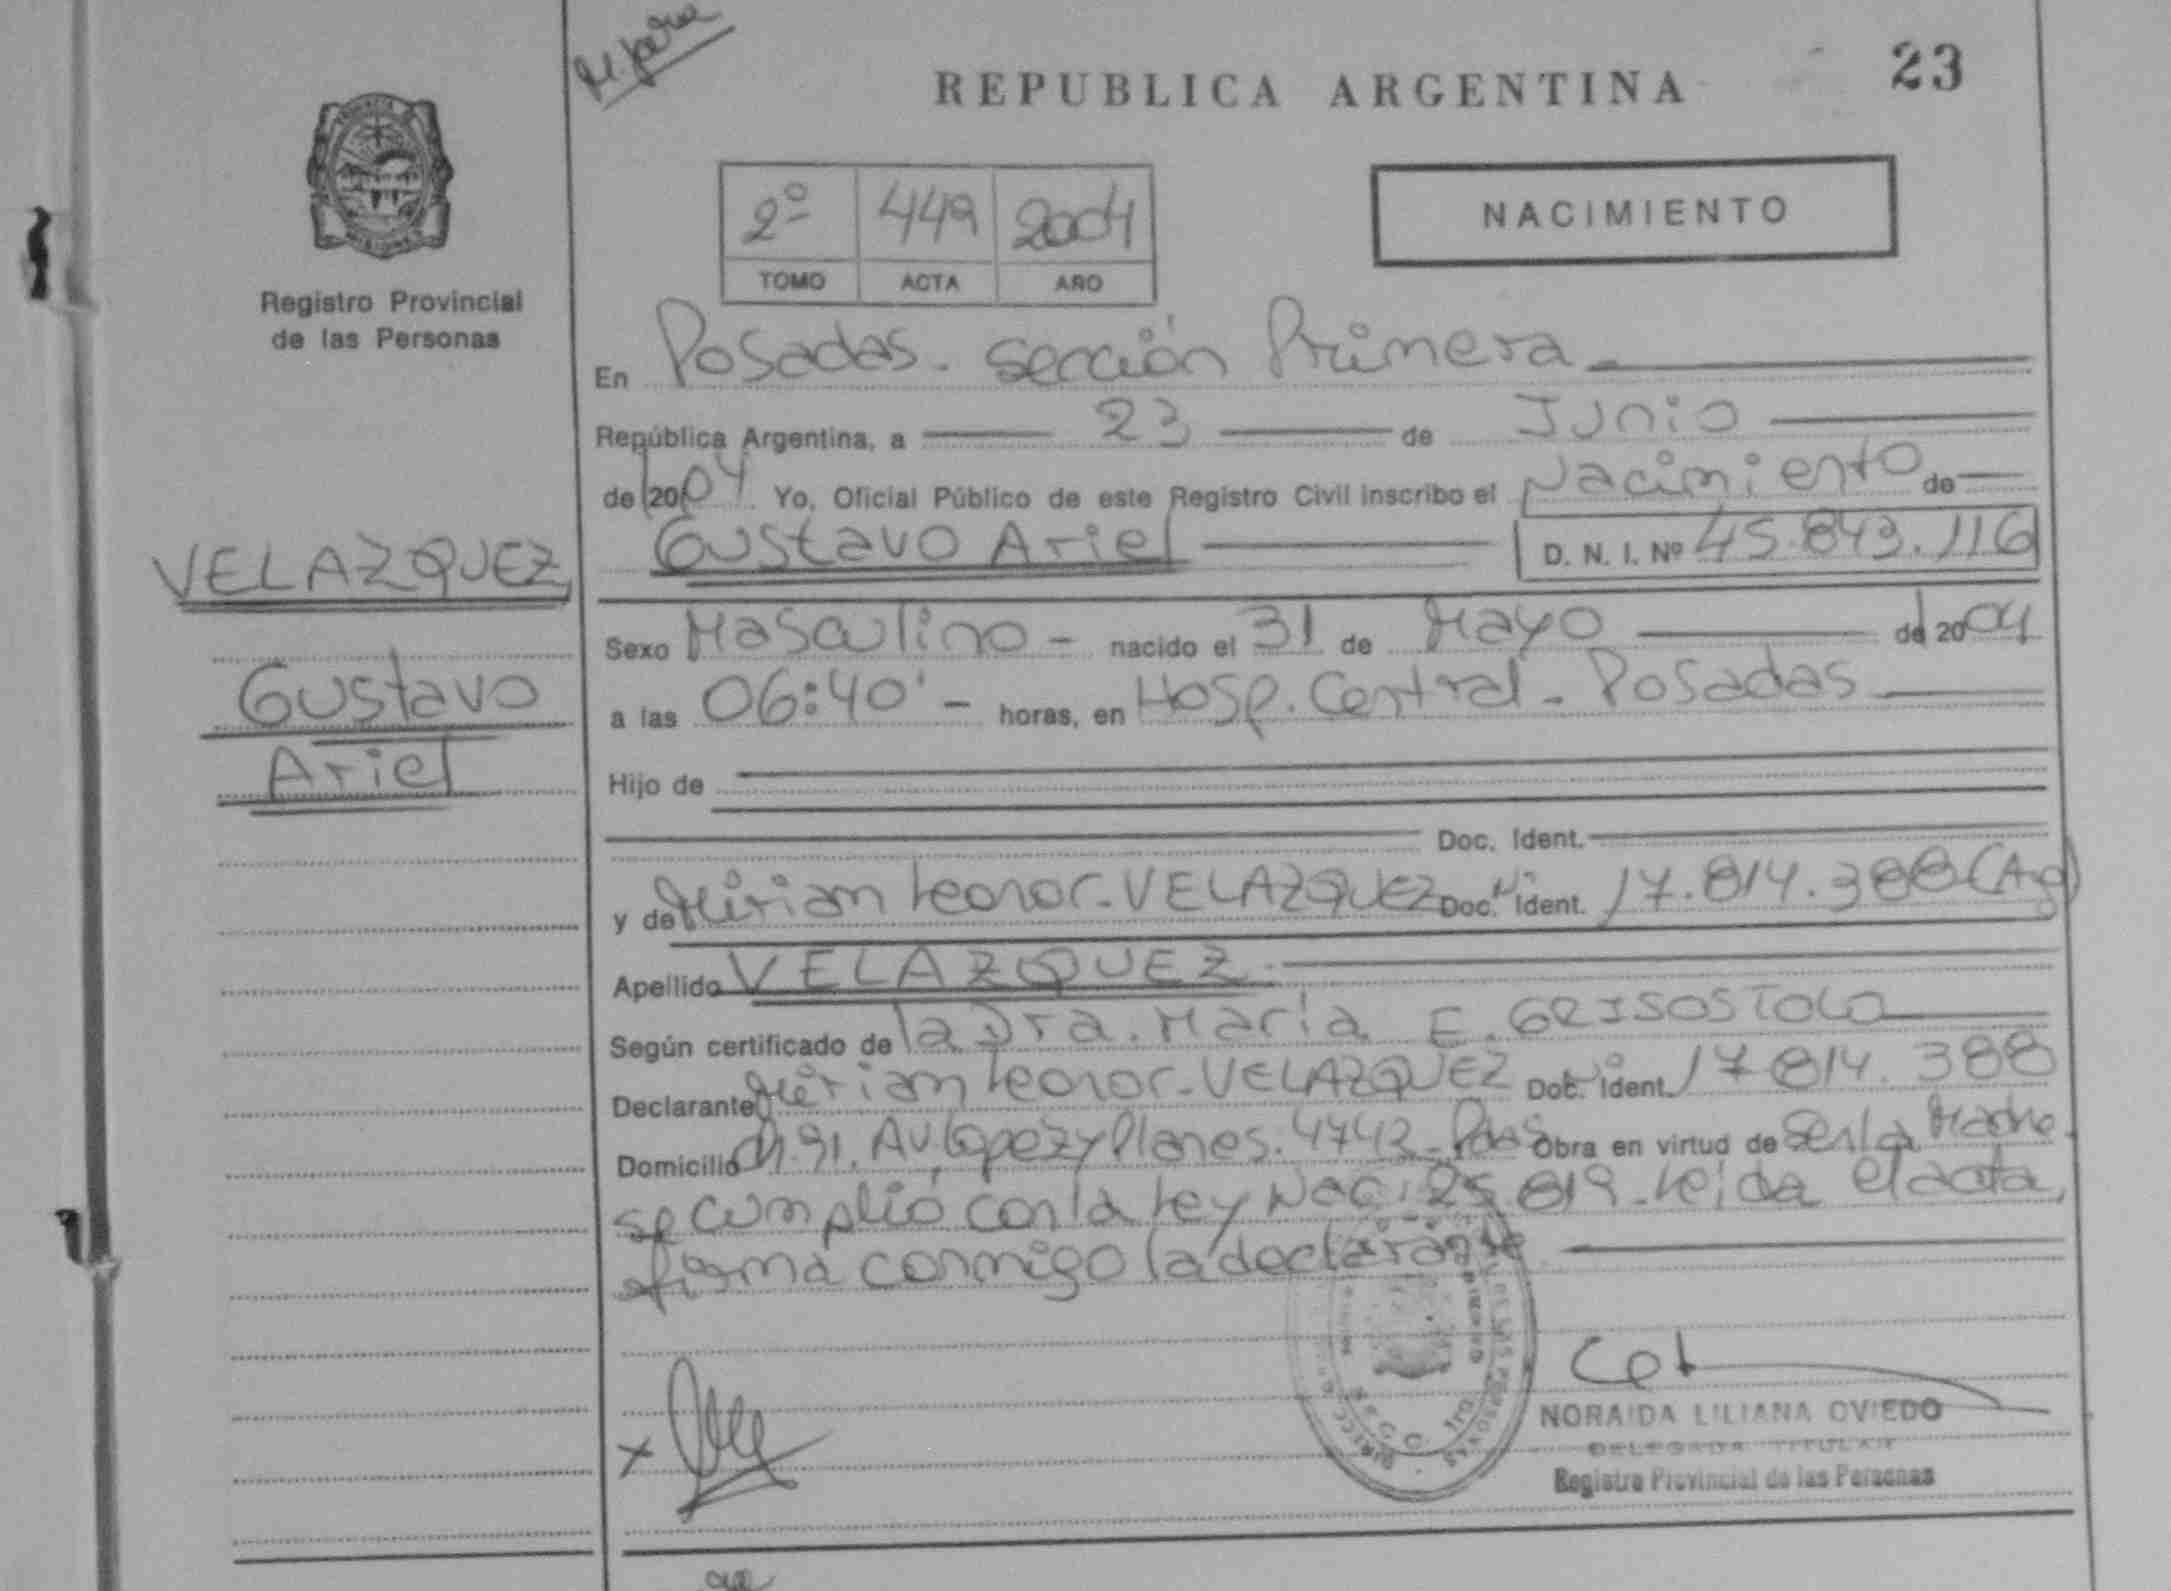 REPUBLICA ARGENTINA
23
2º 449 2004
TOMO ACTA AÑO
NACIMIENTO
Registro Provincial
de las Personas
VELAZQUEZ
Gustavo
Ariel
En Posadas. Sección Primera
República Argentina, a 23 de Junio
de 2004 Yo, Oficial Público de este Registro Civil inscribo el Nacimiento de
Gustavo Ariel D. N. I. Nº 45.843.116
Sexo Masculino - nacido el 31 de Mayo de 2004
a las 06:40' - horas, en Hosp. Central - Posadas
Hijo de
Doc. Ident.
y de Mirian Leonor - VELAZQUEZ Doc. Ident. 17.814.388 (Arg)
Apellido VELAZQUEZ
Según certificado de la Dra. María E. GRISOSTOLO
Declarante Mirian Leonor - VELAZQUEZ Doc. Ident. 17 814. 388
Domicilio Av. Lopez y Planes. 4743 - Obra en virtud de Ser la Madre.
se cumplió con la Ley Nac. 25.819. Leida el acta,
firma conmigo la declarante
NORAIDA LILIANA OVIEDO
DELEGADA TITULAR
Registro Provincial de las Personas